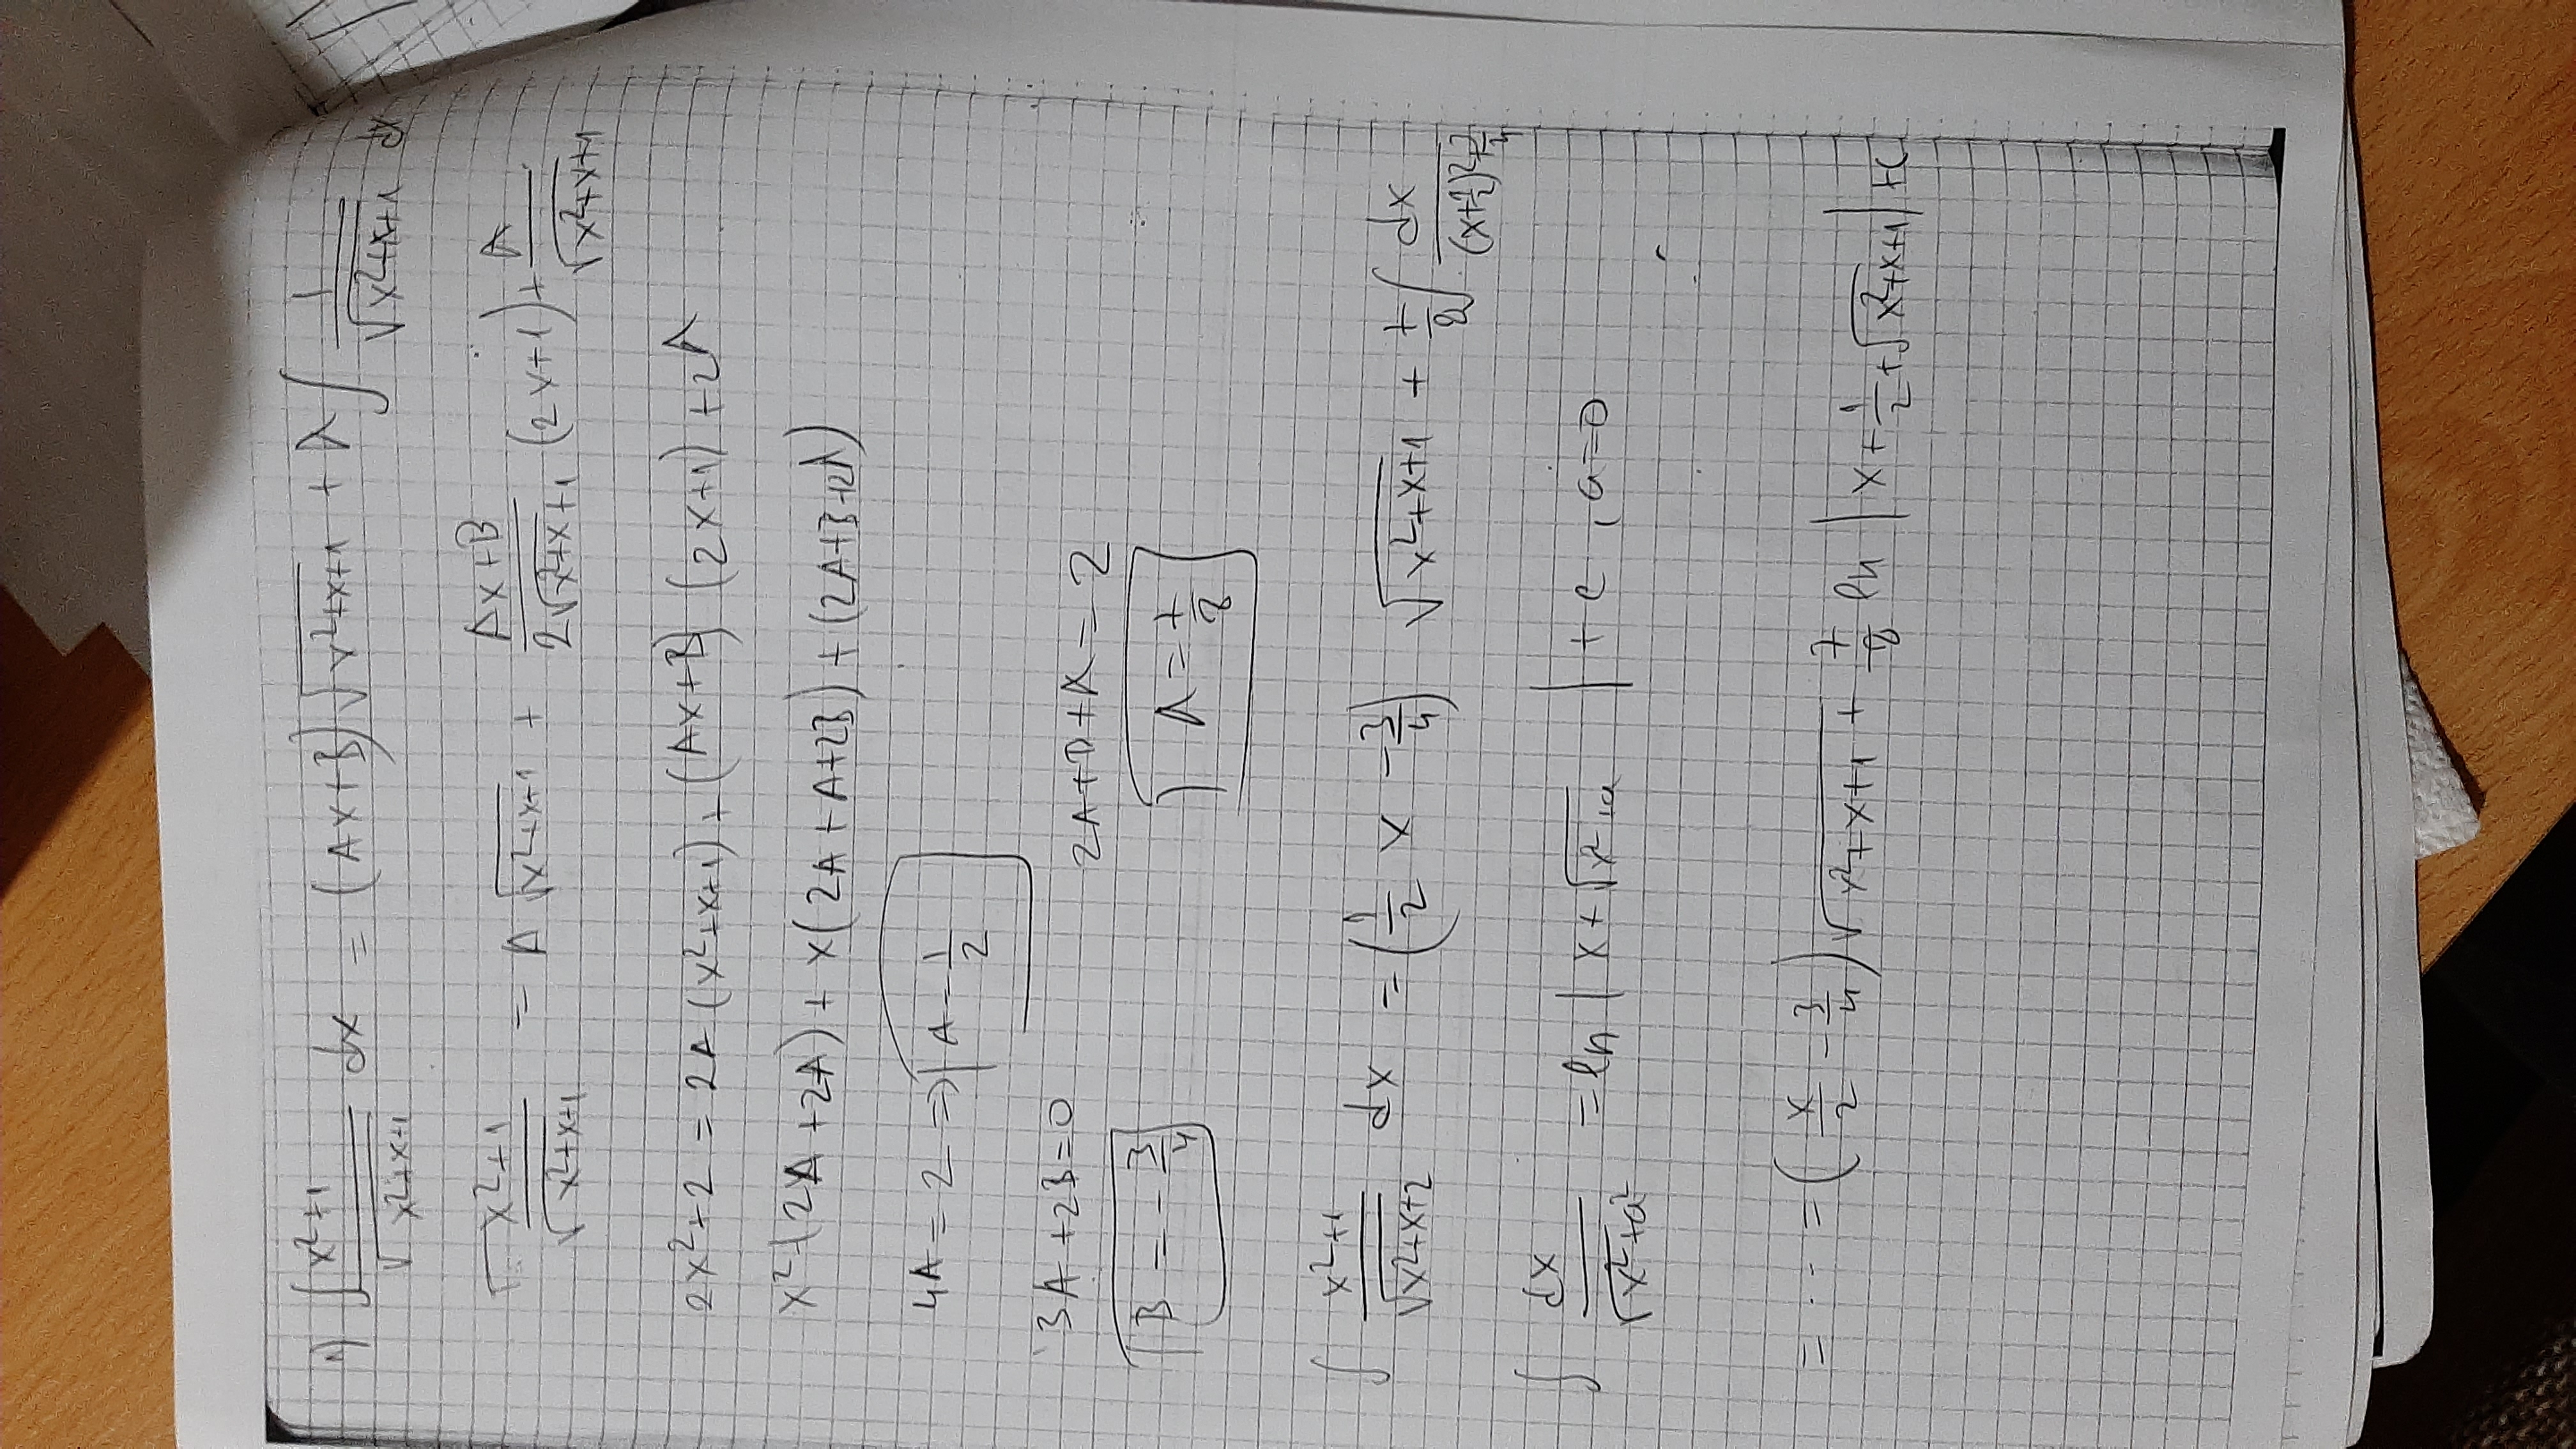 1) ∫ (x²+1)/√(x²+x+1) dx = (Ax+B)√(x²+x+1) + λ∫ 1/√(x²+x+1) dx
(x²+1)/√(x²+x+1) = A√(x²+x+1) + (Ax+B)/(2√(x²+x+1)) (2x+1) + λ/√(x²+x+1)
2x²+2 = 2A(x²+x+1) + (Ax+B)(2x+1) + 2λ
x²(2A+2A) + x(2A+A+2B) + (2A+B+2λ)
4A = 2 ⇒ A = 1/2
3A+2B=0
2A+B+λ = 2
B = -3/4
λ = 7/8
∫ (x²+1)/√(x²+x+2) dx = (1/2 x - 3/4) √(x²+x+1) + 7/8 ∫ dx/((x+1/2)²+3/4)
∫ dx/√(x²+a²) = ln|x+√(x²+a)| + c, a=0
= ... = (x/2 - 3/4)√(x²+x+1) + 7/8 ln|x+1/2+√(x²+x+1)| + c